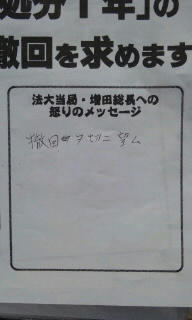 処分1年」の
撤回を求めます
法大当局・増田総長への
怒りのメッセージ
撤回ヲ切ニ望ム